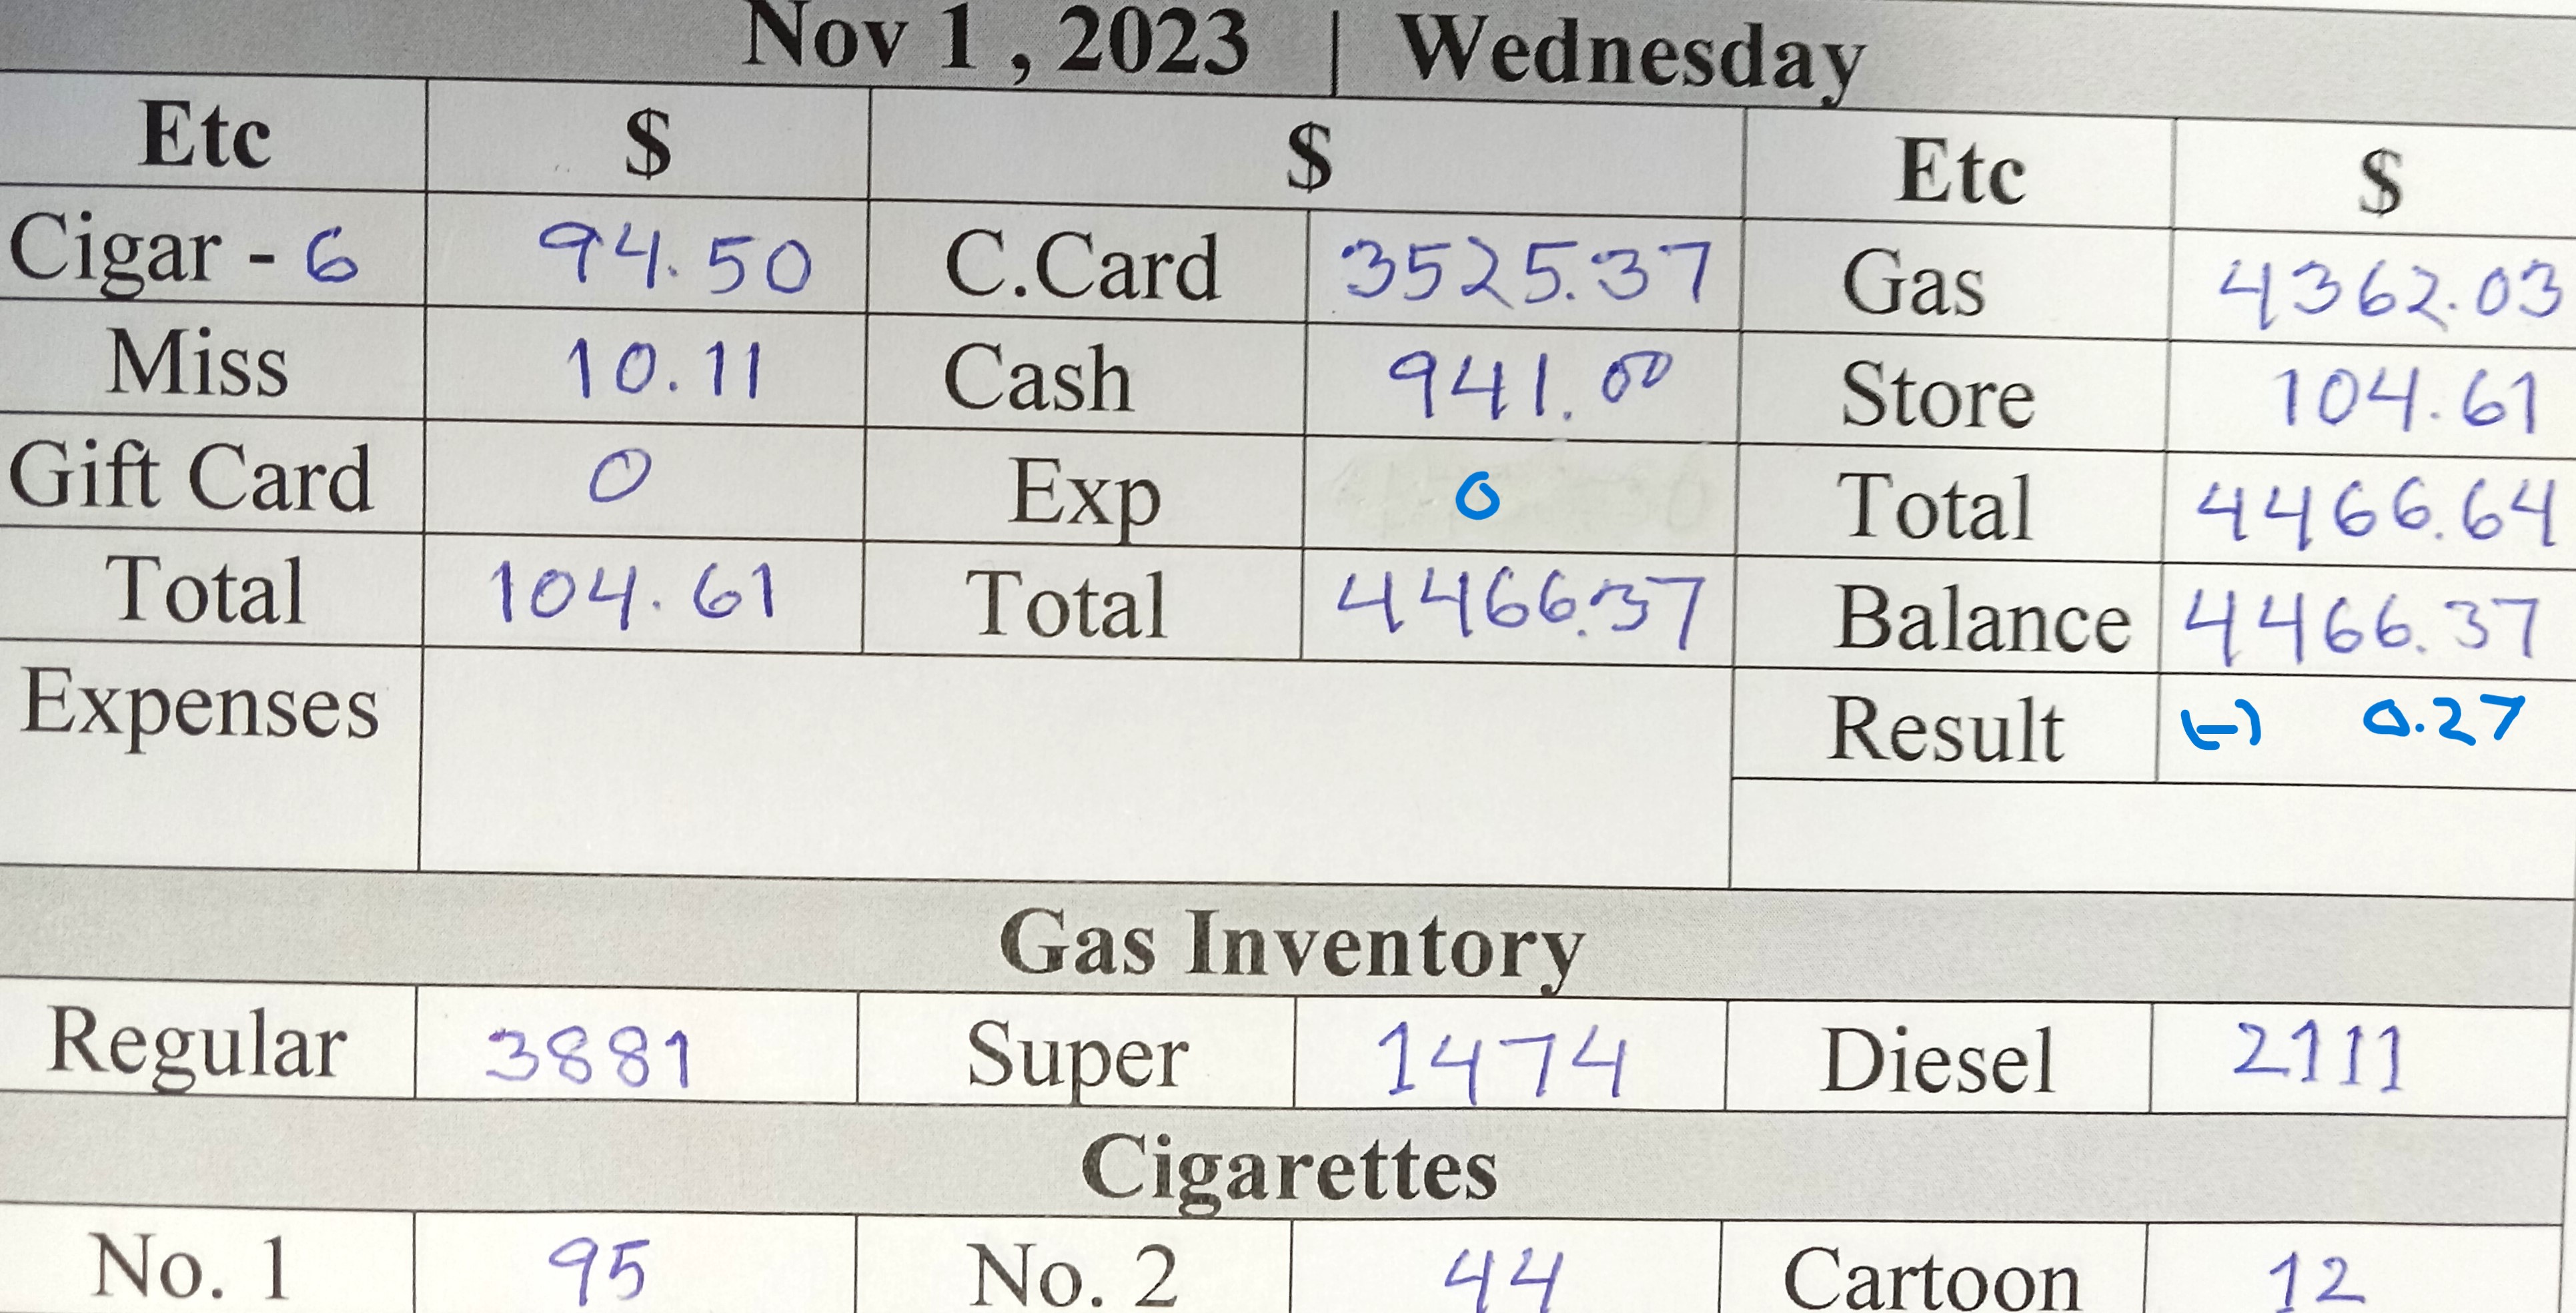 Nov 1 , 2023 | Wednesday
Etc $ $ Etc $
Cigar - 6 94.50 C.Card 3525.37 Gas 4362.03
Miss 10.11 Cash 941.00 Store 104.61
Gift Card 0 Exp 0 Total 4466.64
Total 104.61 Total 4466.37 Balance 4466.37
Expenses Result (-) 0.27
Gas Inventory
Regular 3881 Super 1474 Diesel 2111
Cigarettes
No. 1 95 No. 2 44 Cartoon 12